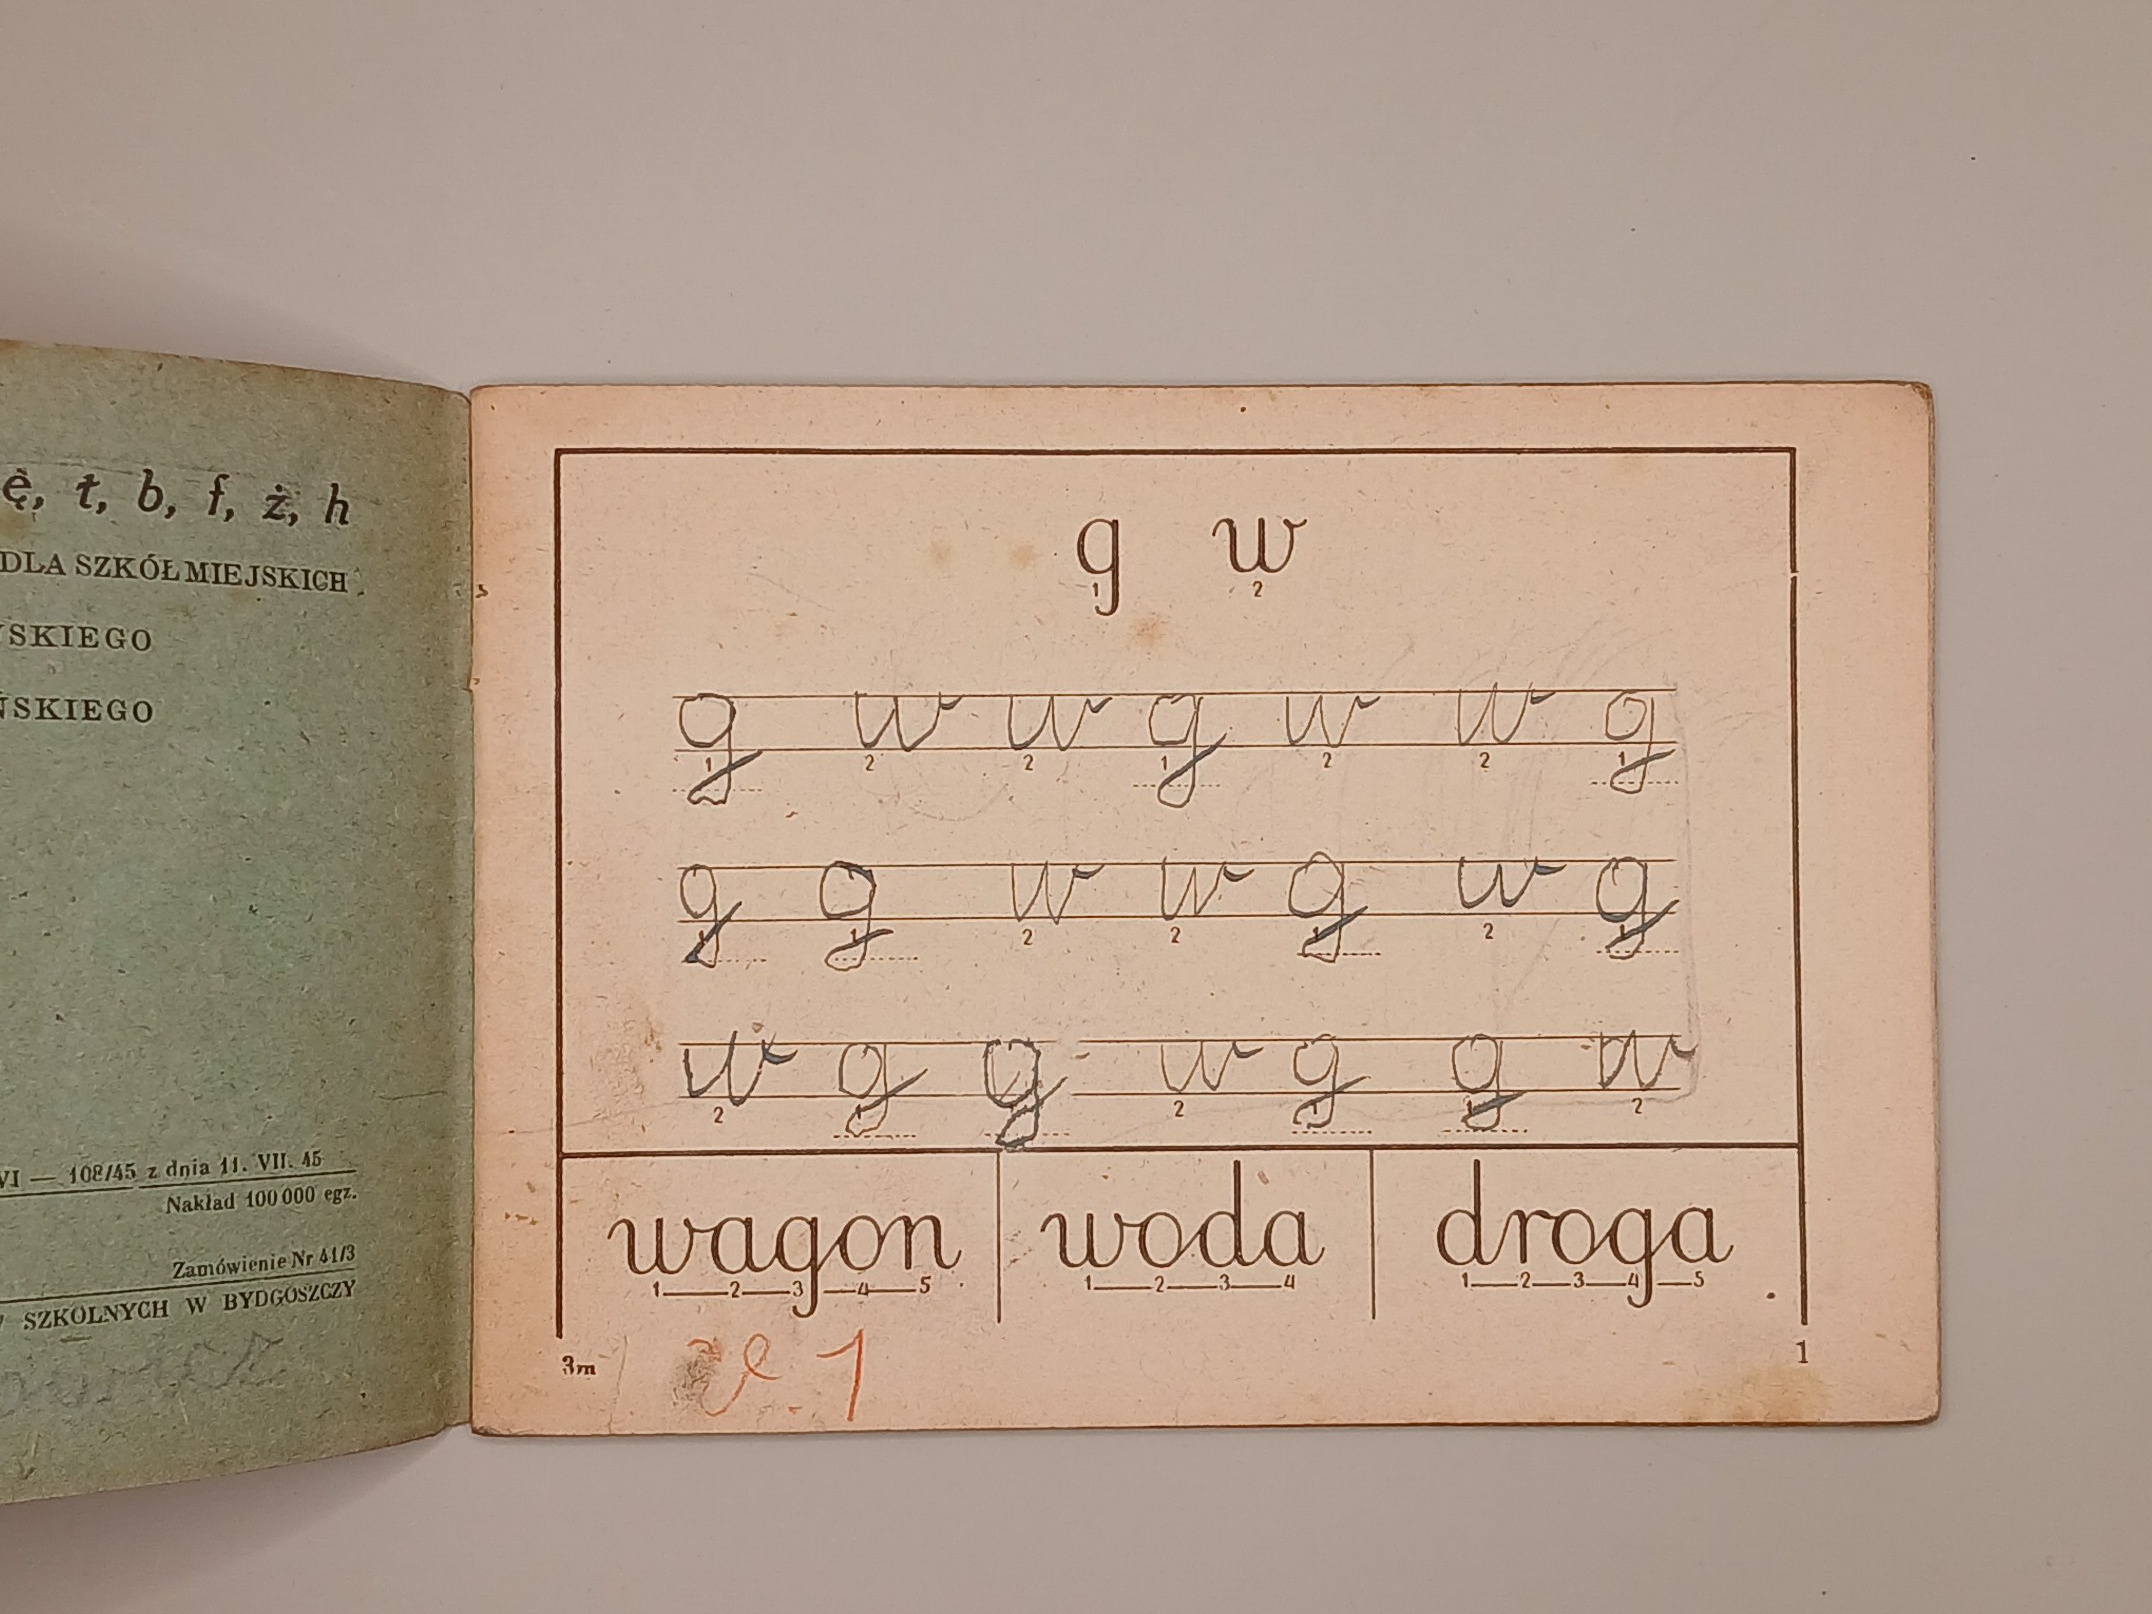 ę, t, b, f, ż, h
DLA SZKÓŁ MIEJSKICH
SKIEGO
ŃSKIEGO
VI — 108/45 z dnia 11. VII. 45
Nakład 100 000 egz.
Zamówienie Nr 41/3
SZKOLNYCH W BYDGOSZCZY
g w
1 2
g w w g w w g
1 2 2 1 2 2 1
g g w w g w g
1 1 2 2 1 2 1
w g g w g g w
2 1 2 1 1 2
wagon woda droga
1—2—3—4—5 1—2—3—4 1—2—3—4—5
3m 1